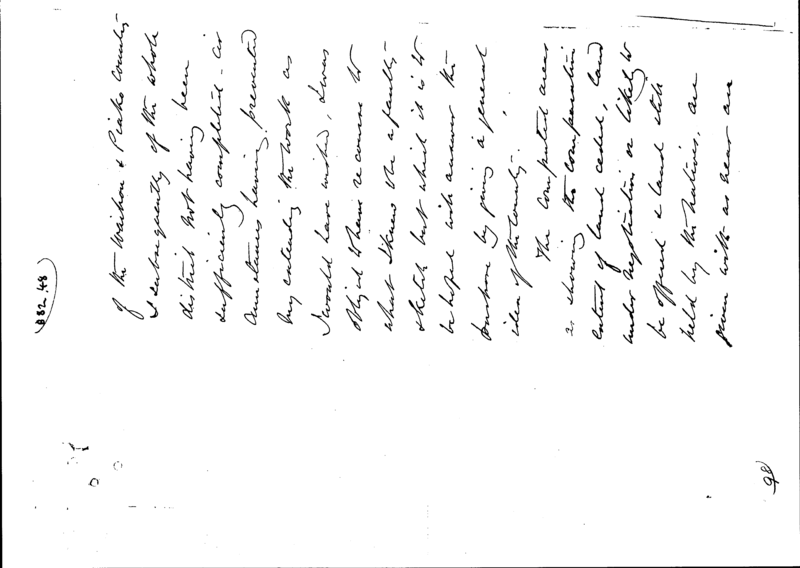 98
of the Waihou & Piako Country -
& subsequently of the whole
district not having been
sufficiently completed - cir
cumstances having prevented
my extending the work as
I would have wished, I was
obliged to have recourse to
what I fear is a faulty
sketch but which it is to
be hoped will answer the
purpose by giving a general
idea of the Country.
The computed areas
as showing the comparative
extent of land ceded, land
under negotiation or likely to
be offered & land still
held by the Natives, are
given with as near an
B82.48